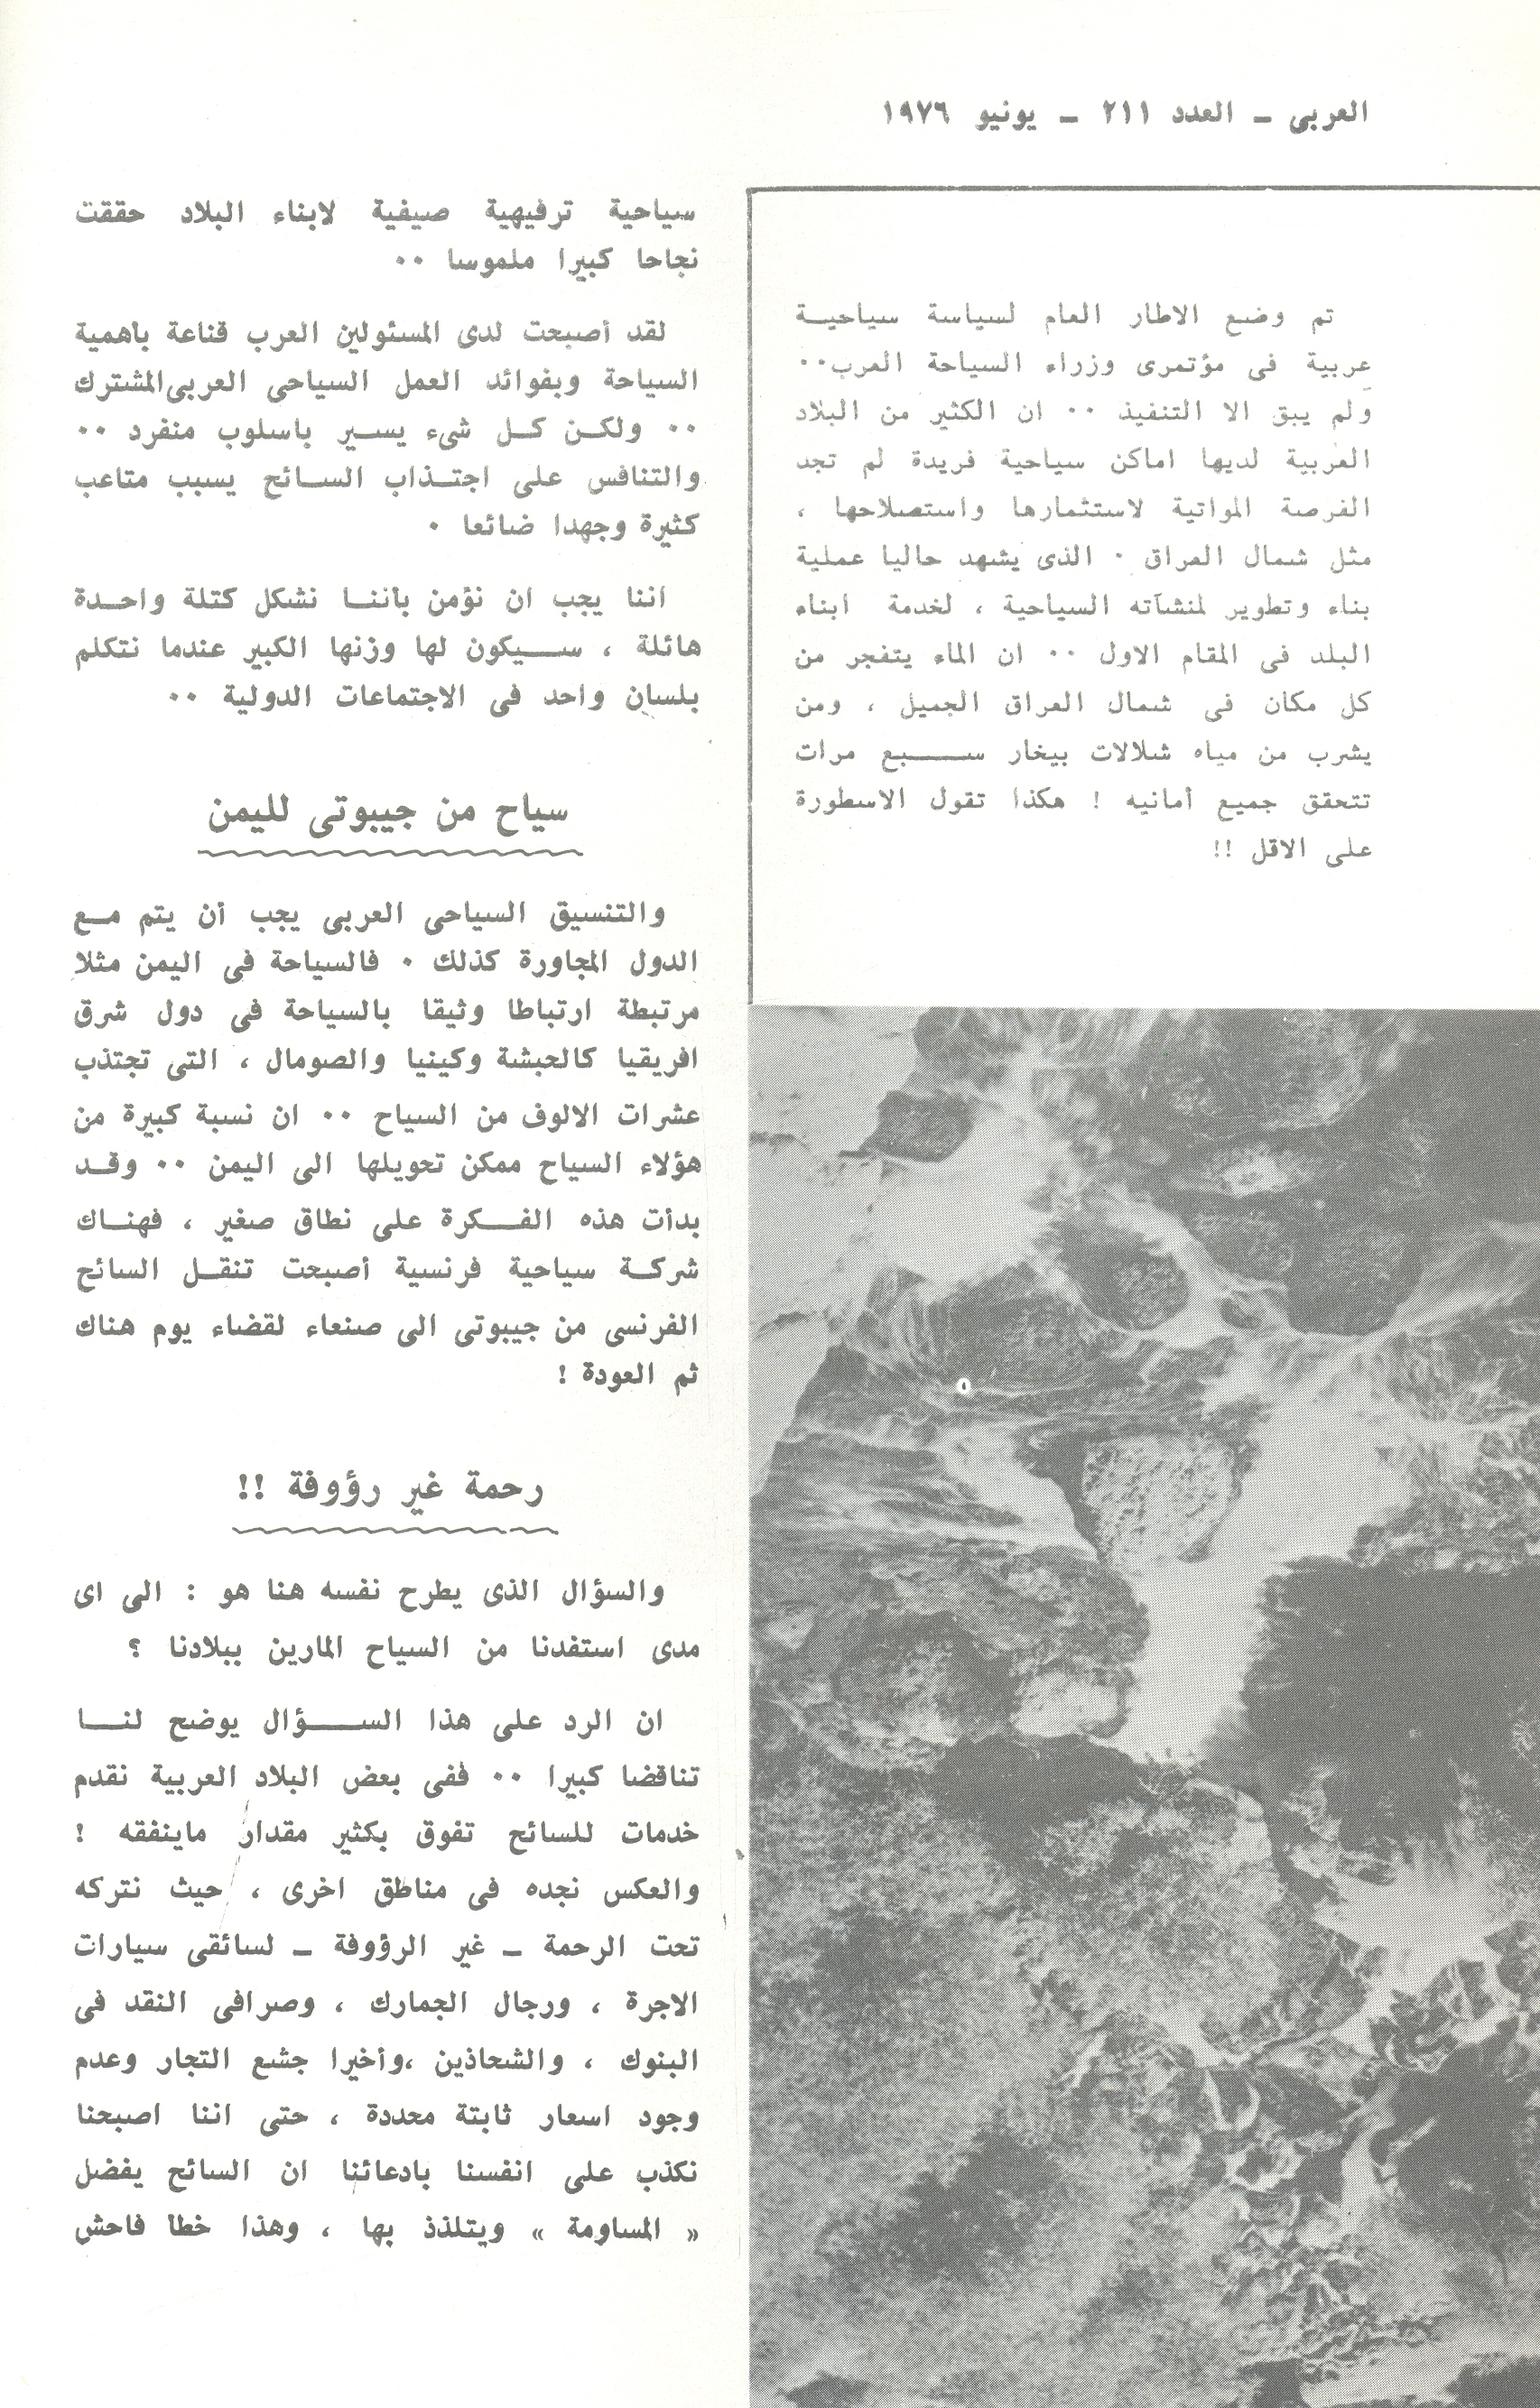 العربى – العدد ٢١١ – يونيو ١٩٧٦
تم وضع الاطار العام لسياسة سياحيــة
عربية فى مؤتمرى وزراء السياحة العرب٠٠
ولم يبق الا التنفيذ ٠٠ ان الكثير من البلاد
العربية لديها اماكن سياحية فريدة لم تجد
الفرصة المواتية لاستثمارها واستصلاحها ،
مثل شمال العراق ٠ الذى يشهد حاليا عملية
بناء وتطوير لمنشآته السياحية ، لخدمة ابناء
البلد فى المقام الاول ٠٠ ان الماء يتفجر من
كل مكان فى شمال العراق الجميل ، ومن
يشرب من مياه شلالات بيخار ســـبع مرات
تتحقق جميع أمانيه ! هكذا تقول الاسطورة
على الاقل !!
سياحية ترفيهية صيفية لابناء البلاد حققت
نجاحا كبيرا ملموسا ٠٠
لقد أصبحت لدى المسئولين العرب قناعة باهمية
السياحة وبفوائد العمل السياحى العربى المشترك
٠٠ ولكـن كـل شىء يسـير باسلوب منفرد ٠٠
والتنافس على اجتـذاب السـائح يسبب متاعب
كثيرة وجهدا ضائعا ٠
اننا يجب ان نؤمن بأننـا نشكل كتلة واحـدة
هائلة ، ســـيكون لها وزنها الكبير عندما نتكلم
بلسان واحد فى الاجتماعات الدولية ٠٠
سياح من جيبوتى لليمن
والتنسيق السياحى العربى يجب أن يتم مـع
الدول المجاورة كذلك ٠ فالسياحة فى اليمن مثلا
مرتبطة ارتباطا وثيقا بالسياحة فى دول شرق
افريقيا كالحبشة وكينيا والصومال ، التى تجتذب
عشرات الالوف من السياح ٠٠ ان نسبة كبيرة من
هؤلاء السياح ممكن تحويلها الى اليمن ٠٠ وقـد
بدأت هذه الفـــكرة على نطاق صغير ، فهنـاك
شركـة سياحية فرنسية أصبحت تنقـل السائح
الفرنسى من جيبوتى الى صنعاء لقضاء يوم هناك
ثم العودة !
رحمة غير رؤوفة !!
والسؤال الذى يطرح نفسه هنا هو : الى اى
مدى استفدنا من السياح المارين ببلادنا ؟
ان الرد على هذا الســـؤال يوضح لنـــا
تناقضا كبيرا ٠٠ ففى بعض البلاد العربية نقدم
خدمات للسائح تفوق بكثير مقدار ماينفقه !
والعكس نجده فى مناطق اخرى ، حيث نتركه
تحت الرحمة – غير الرؤوفة – لسائقى سيارات
الاجرة ، ورجال الجمارك ، وصرافى النقد فى
البنوك ، والشحاذين ،وأخيرا جشع التجار وعدم
وجود اسعار ثابتة محددة ، حتى اننا اصبحنا
نكذب على انفسنا بادعائنا ان السائح يفضل
« المساومة » ويتلذذ بها ، وهذا خطا فاحش